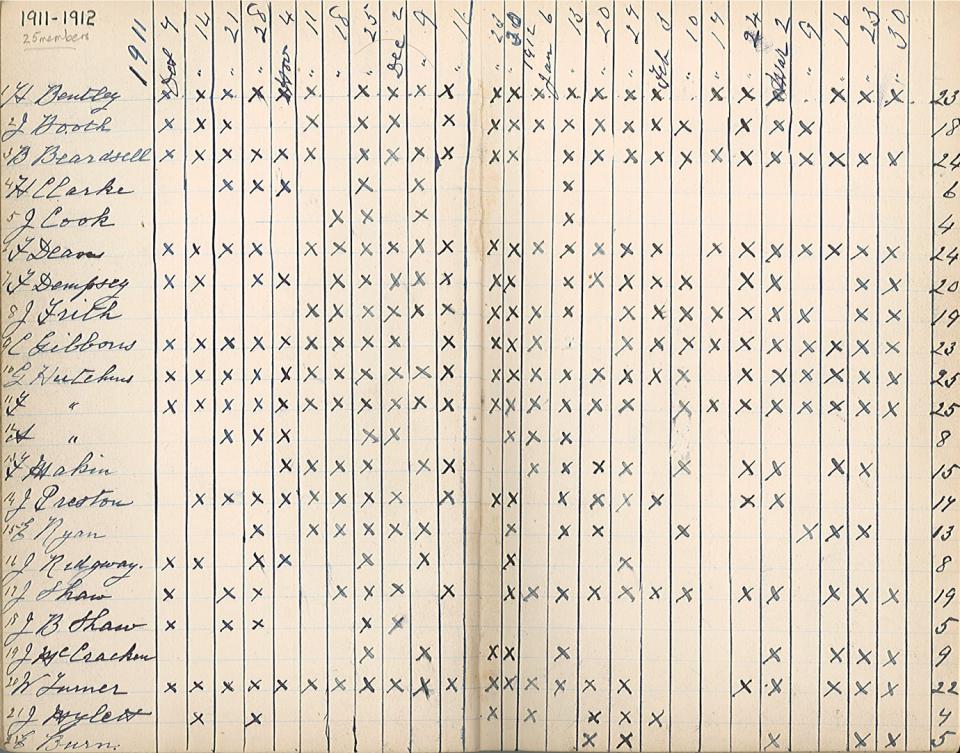 1911-1912
25 members
1911 Oct 7 " 14 " 21 " 28 Nov 4 " 11 " 18 " 25 Dec 2 " 9 " 16 " 23 30 1912 Jan 6 " 13 " 20 " 27 Feb 3 " 10 " 17 " 24 Mar 2 " 9 " 16 " 23 " 30
1 H Bentley x x x x x x x x x x x x x x x x x x x x x x x x 23
2 J Booth x x x x x x x x x x x x x x x x x x x 18
3 B Beardsell x x x x x x x x x x x x x x x x x x x x x x x x x 24
4 H Clarke x x x x x x 6
5 J Cook x x x x 4
6 F Deans x x x x x x x x x x x x x x x x x x x x x x x x 24
7 F Dempsey x x x x x x x x x x x x x x x x x x x x 20
8 J Frith x x x x x x x x x x x x x x x x x x x 19
9 C Gibbons x x x x x x x x x x x x x x x x x x x x x x x 23
10 G Hutchins x x x x x x x x x x x x x x x x x x x x x x x x x 25
11 F " x x x x x x x x x x x x x x x x x x x x x x x x x 25
12 A " x x x x x x x x 8
13 F Makin x x x x x x x x x x x x x x x 15
14 J Preston x x x x x x x x x x x x x x x x x 17
15 E Ryan x x x x x x x x x x x x x 13
16 J Ridgway. x x x x x x x x 8
17 J Shaw x x x x x x x x x x x x x x x x x x x 19
18 J B Shaw x x x x x 5
19 J McCracken x x x x x x x x x 9
20 W Turner x x x x x x x x x x x x x x x x x x x x x x 22
21 J x x x x x x x 7
E Burn. x x x x x 5